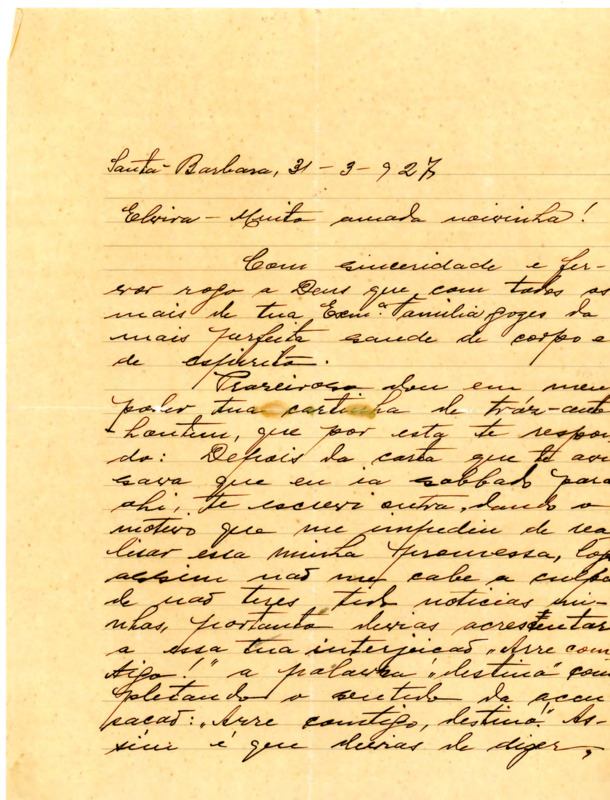 Santa-Barbara, 31-3-927
Elvira - Muito amada noivinha!
Com sinceridade e fer-
vor rogo a Deus que com todos os
mais de tua Exmª familia gozes da
mais perfeita saude de corpo e
de espirito.
Prazeiroso dou em meu
poder tua cartinha de tráz-ante
-hontem, que por esta te respon
do: Depois da carta que te avi
sava que eu ia sabbado para
ahi, te escrevi outra, dando o
motivo que me impediu de rea
lisar essa minha promessa, logo
assim naõ me cabe a culpa
de naõ teres tido noticias mi-
nhas, portanto devias acrescentar
a essa tua interjeicaõ „Arre com
tigo!" a palavra „destino" com
pletando o sentido da accu
sacaõ: „Arre comtigo, destino". As-
sim é que devias de dizer,